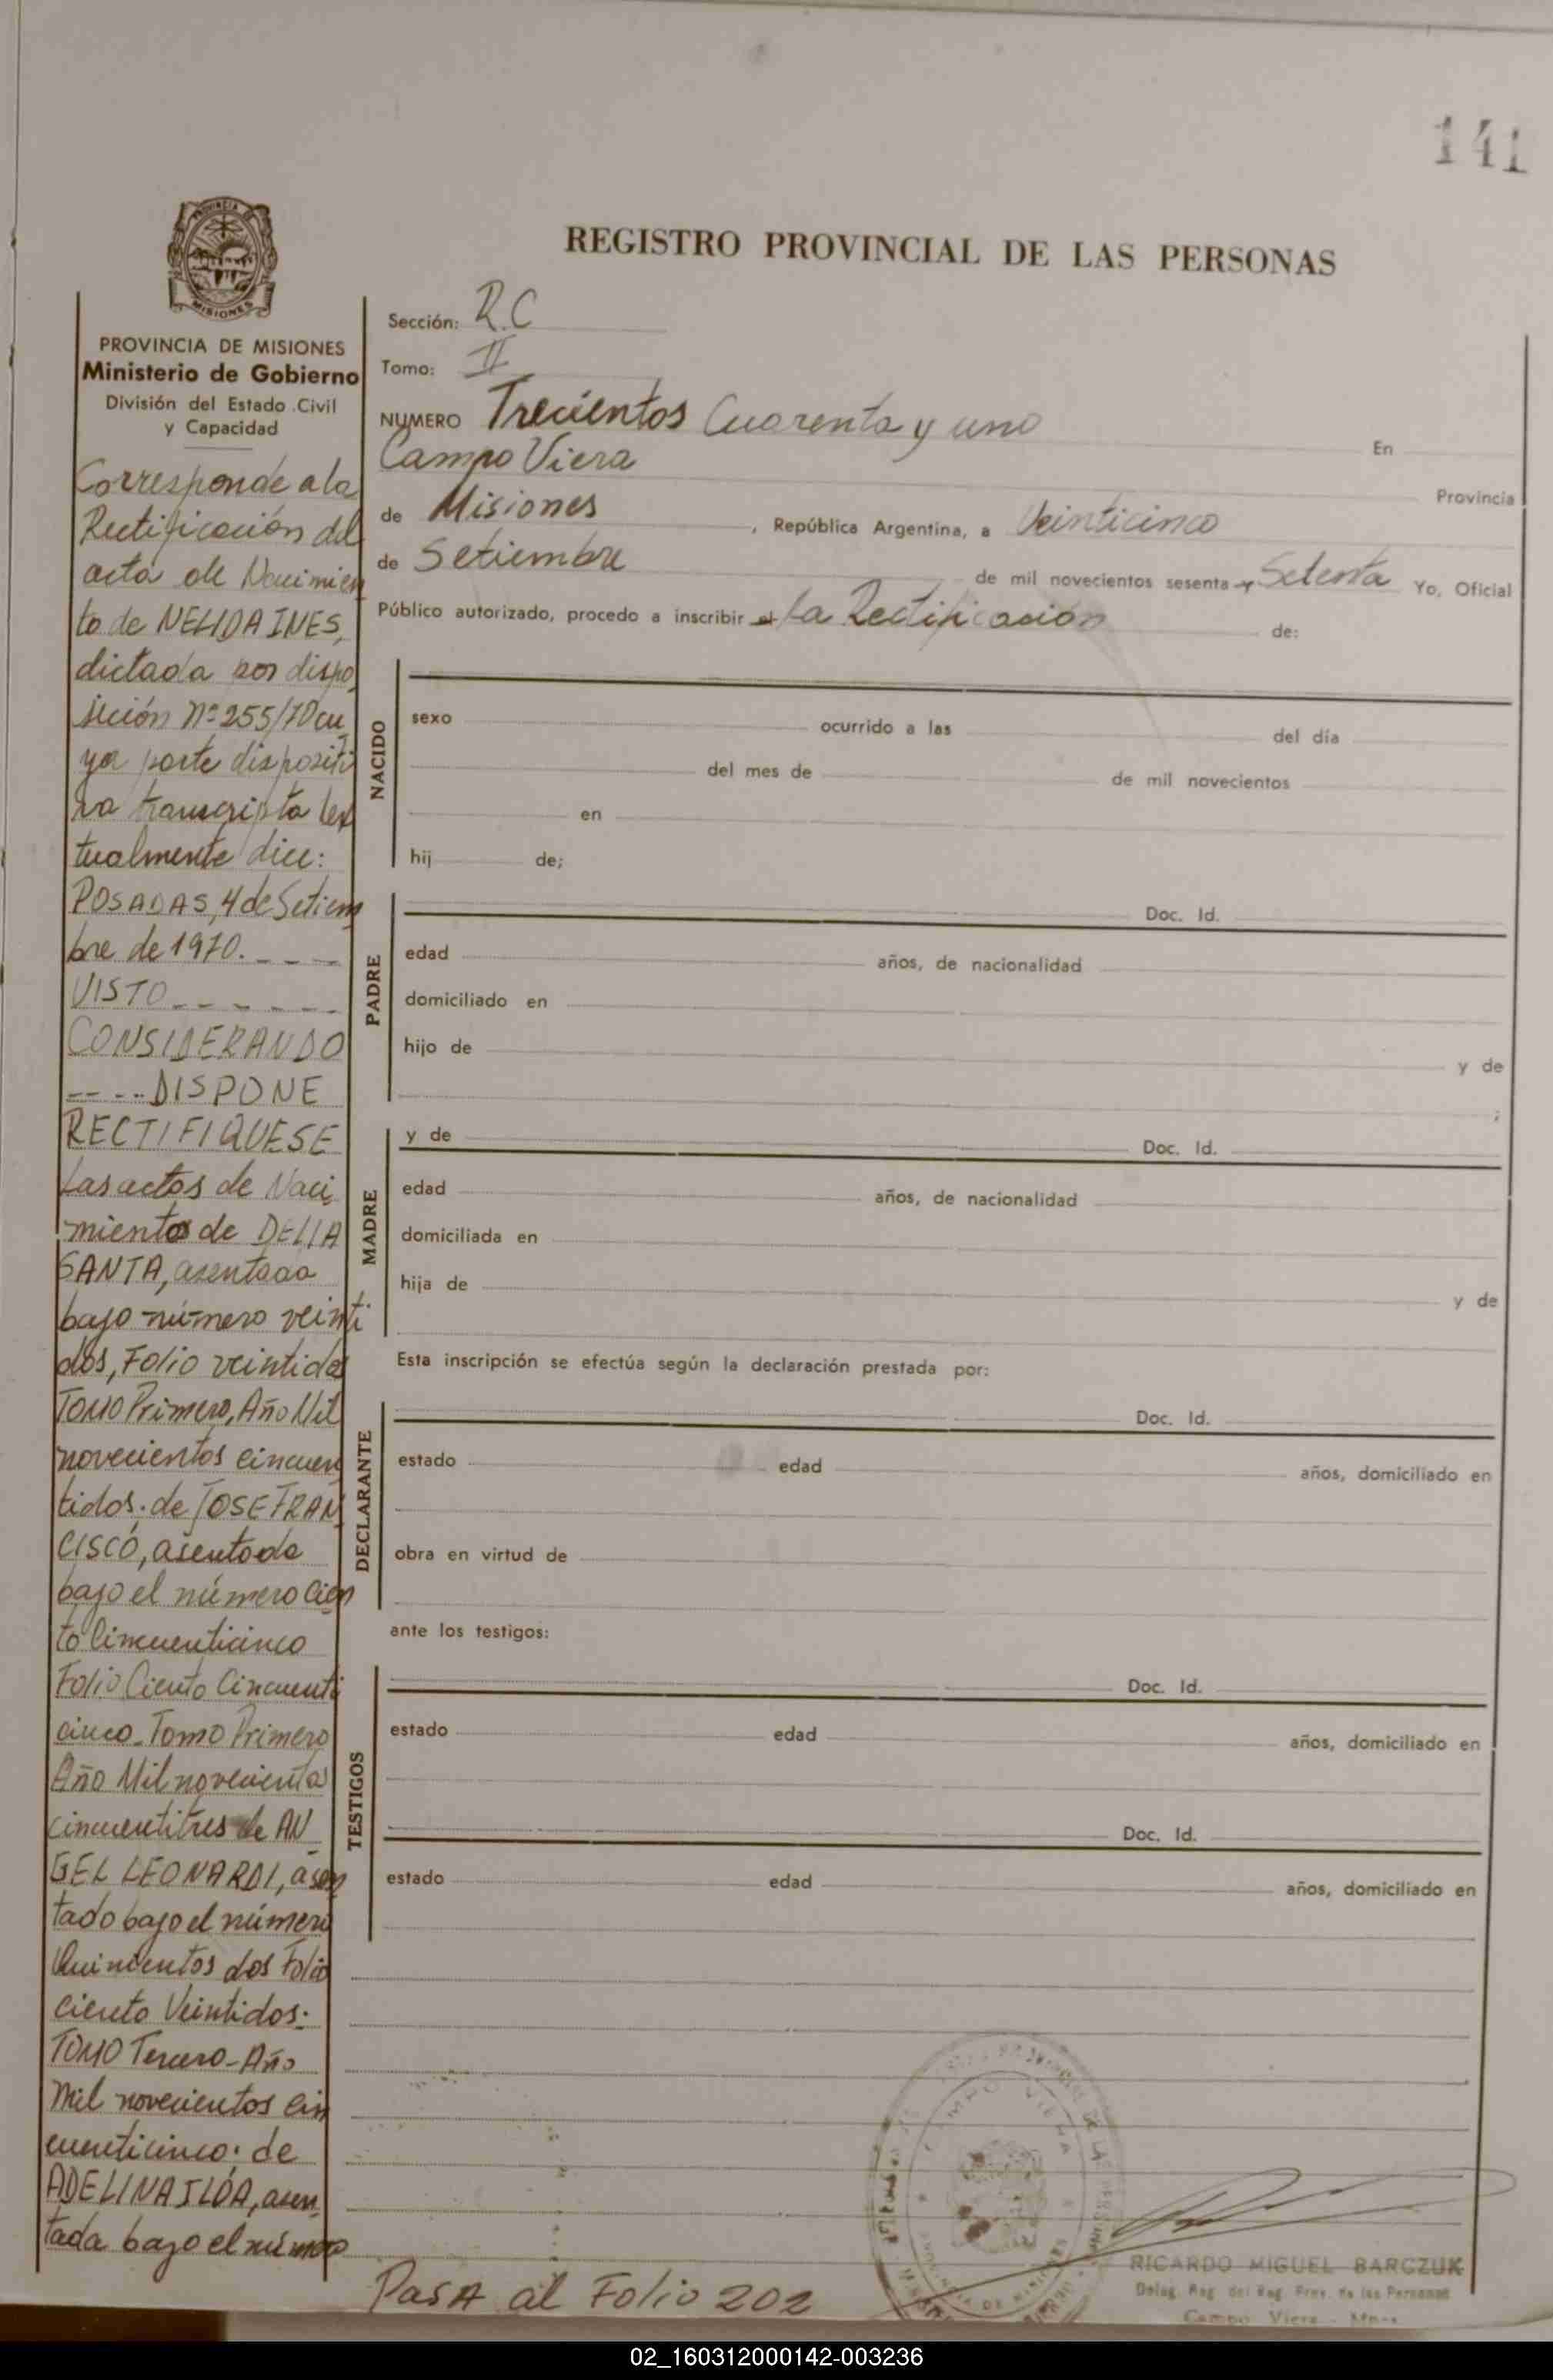 141
PROVINCIA DE
MISIONES
REGISTRO PROVINCIAL DE LAS PERSONAS
PROVINCIA DE MISIONES
Ministerio de Gobierno
División del Estado Civil
y Capacidad
Corresponde a la
Rectificación del
acta de Nacimien
to de NELIDA INES,
dictada por dispo
sición Nº 255/70 cu
ya parte dispositi
va transcripta tex
tualmente dice:
POSADAS, 4 de Setiem
bre de 1970. _ _ _
VISTO _ _ _ _ _ _
CONSIDERANDO
_ _ _ .. DISPONE
RECTIFIQUESE
Las actas de Naci
mientos de DELIA
SANTA, asentada
bajo número veinti
dos, Folio veintidos
TOMO Primero, Año Mil
novecientos cincuen
tidos; de JOSE FRAN
CISCO, asentada
bajo el número Cien
to Cincuenticinco
Folio Ciento Cincuenti
cinco. Tomo Primero
Año Mil novecientos
cincuentitres de AN
GEL LEONARDI, asen
tado bajo el número
Quinientos dos Folio
Ciento Veintidos.
TOMO Tercero - Año
Mil novecientos cin
cuenticinco; de
ADELINA ILDA, asen
tada bajo el número
Sección: R.C
Tomo: II
NUMERO Trecientos Cuarenta y uno En
Campo Viera Provincia
de Misiones, República Argentina, a Veinticinco
de Setiembre de mil novecientos sesenta y Setenta Yo, Oficial
Público autorizado, procedo a inscribir el la Rectificación de:
NACIDO
sexo ocurrido a las del día
del mes de de mil novecientos
en
hij de;
PADRE
Doc. Id.
edad años, de nacionalidad
domiciliado en
hijo de y de
;
MADRE
y de Doc. Id.
edad años, de nacionalidad
domiciliada en
hija de y de
Esta inscripción se efectúa según la declaración prestada por:
DECLARANTE
Doc. Id.
estado edad años, domiciliado en
obra en virtud de
ante los testigos:
TESTIGOS
Doc. Id.
estado edad años, domiciliado en
Doc. Id.
estado edad años, domiciliado en
CAMPO VIERA
RICARDO MIGUEL BARCZUK
Deleg. Reg. del Reg. Prov. de las Personas
Campo Viera - Mnes
Pasa al Folio 202
02_160312000142-003236